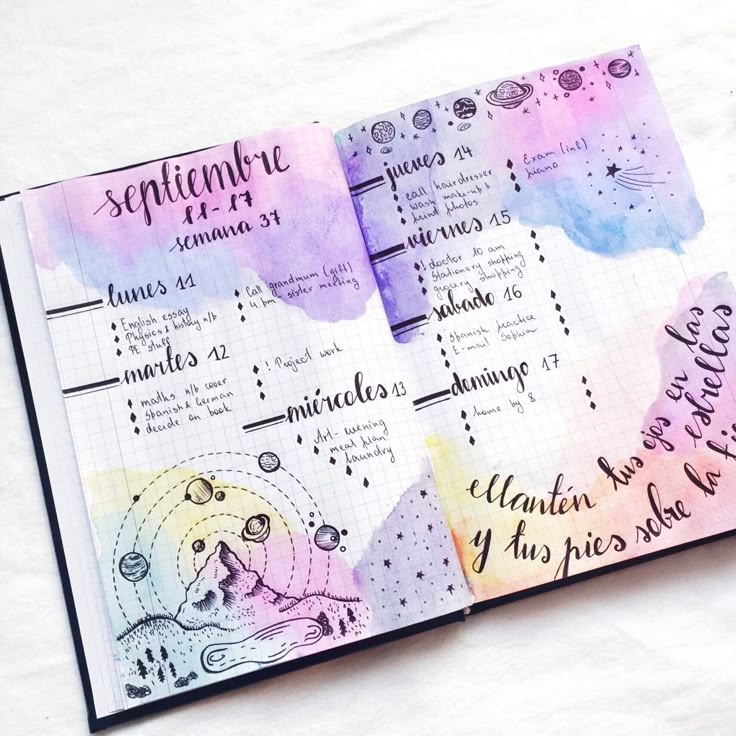 septiembre
11-17
semana 37
lunes 11
English essay
Physics & history n/b
PE stuff
Call grandmum (gift)
4 pm sister meeting
martes 12
maths n/b cover
Spanish & German
decide on book
! Project work
miércoles 13
Art - evening
meal plan
laundry
jueves 14
call hairdresser
wash make-up b
print photos
Exam (inf)
piano
viernes 15
! doctor 10 am
Stationery shopping
grocery shopping
sábado 16
Spanish practice
E-mail Sophia
domingo 17
home by 8
Mantén tus ojos en las estrellas
y tus pies sobre la tie